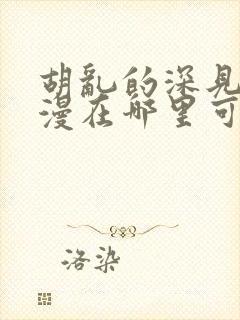 胡乱的深见
漫在哪里可
洛染